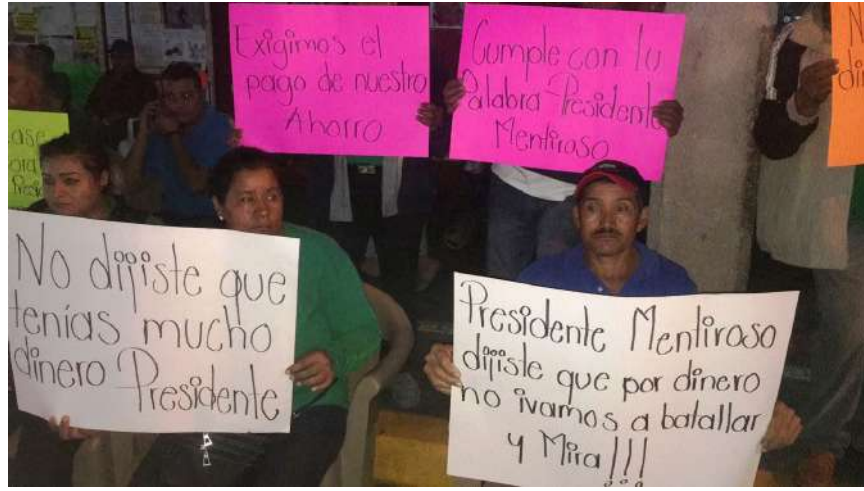 Exigimos el
pago de nuestro
Ahorro
Cumple con tu
Palabra Presidente
Mentiroso
No dijiste que
tenías mucho
dinero Presidente
Presidente Mentiroso
dijiste que por dinero
no ivamos a batallar
y Mira!!!